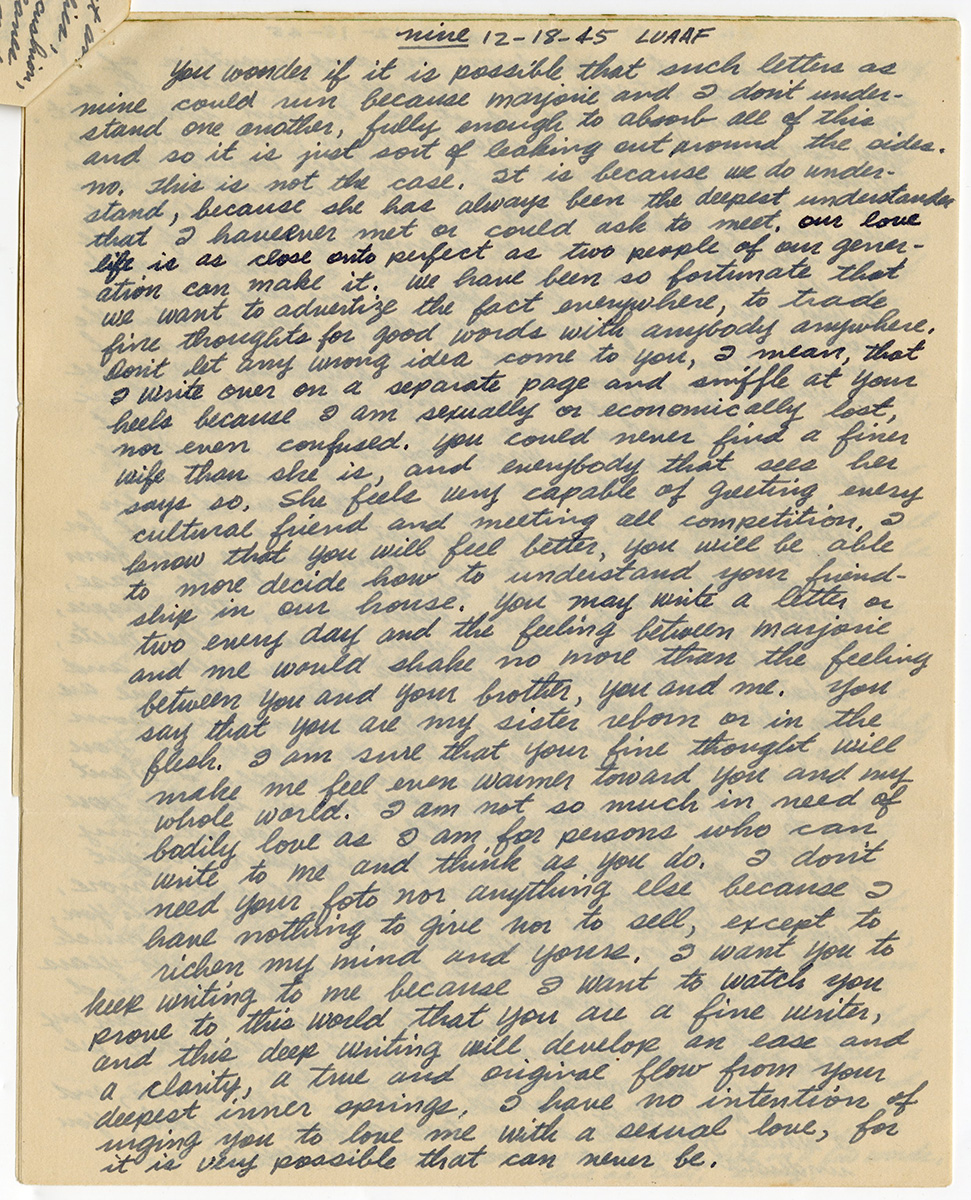 nine 12-18-45 LVAAF
You wonder if it is possible that such letters as
mine could run because marjorie and I don't under-
stand one another, fully enough to absorb all of this
and so it is just sort of leaking out around the sides.
no. This is not the case. It is because we do under-
stand, because she has always been the deepest understander
that I have ever met or could ask to meet. our love
life is as close onto perfect as two people of our gener-
ation can make it. We have been so fortunate that
we want to advertize the fact everywhere, to trade
fine thoughts for good words with anybody anywhere.
Don't let any wrong idea come to you, I mean, that
I write over on a separate page and sniffle at your
heels because I am sexually or economically lost,
nor even confused. you could never find a finer
wife than she is, and everybody that sees her
says so. She feels very capable of greeting every
cultural friend and meeting all competition. I
know that you will feel better, you will be able
to more decide how to understand your friend-
ship in our house. You may write a letter or
two every day and the feeling between marjorie
and me would shake no more than the feeling
between you and your brother, you and me. You
say that you are my sister reborn or in the
flesh. I am sure that your fine thought will
make me feel even warmer toward you and my
whole world. I am not so much in need of
bodily love as I am for persons who can
write to me and think as you do. I don't
need your foto nor anything else because I
have nothing to give nor to sell, except to
richen my mind and yours. I want you to
keep writing to me because I want to watch you
prove to this world that you are a fine writer,
and this deep writing will develop an ease and
a clarity, a true and original flow from your
deepest inner springs. I have no intention of
urging you to love me with a sexual love, for
it is very possible that can never be.